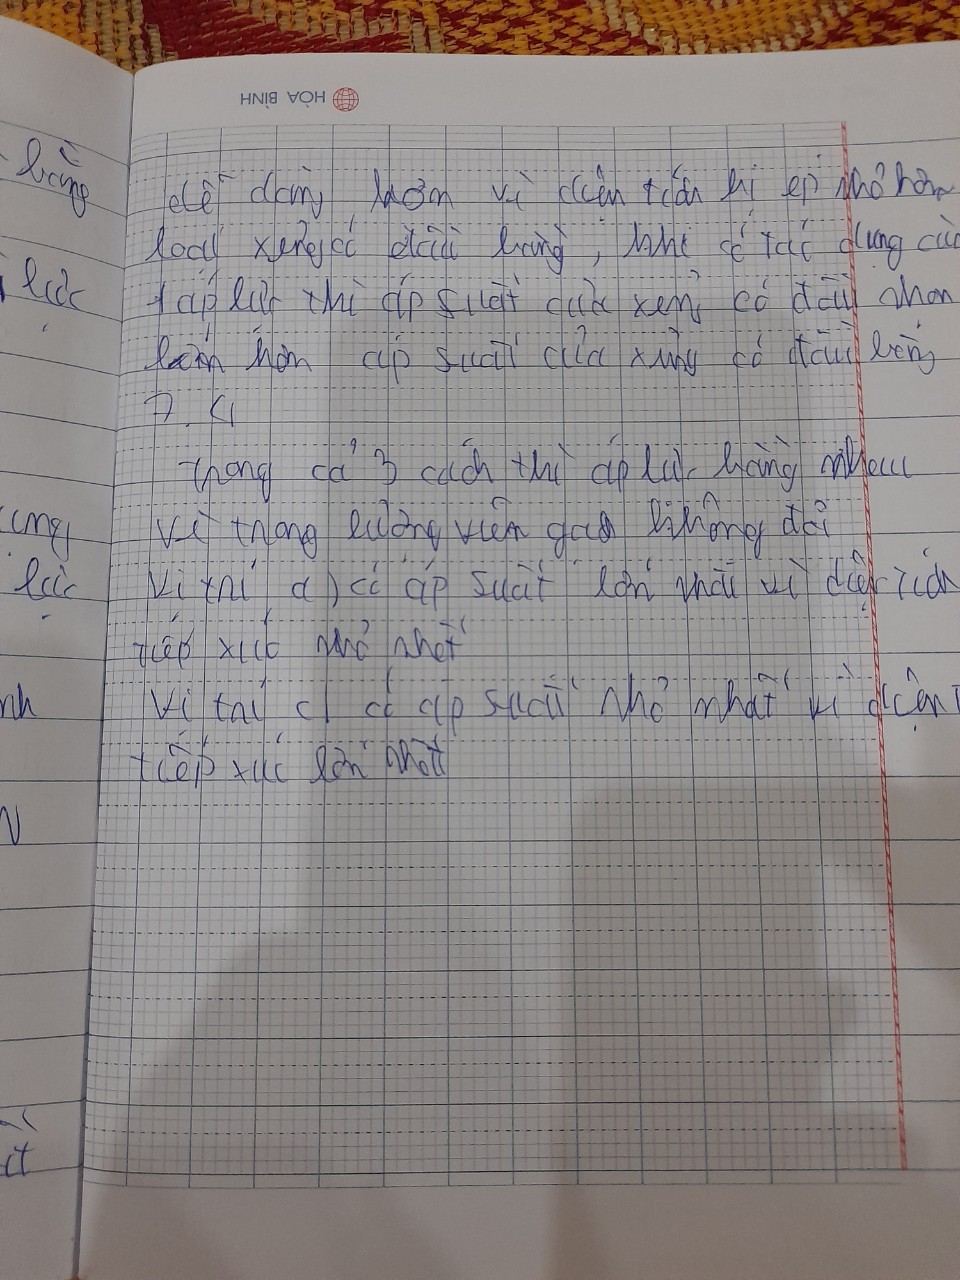 HÒA BÌNH
bằng
lực
ưng
lực
nh
N
ct
dễ dàng hơn vì diện tích bị ép nhỏ hơn
loại xẻng có đầu bằng, khi có tác dụng của
áp lực thì áp suất của xẻng có đầu nhọn
lớn hơn áp suất của xẻng có đầu bằng
7.
Trong cả 3 cách thì áp lực bằng nhau
Vì trọng lượng viên gạch không đổi
Vị trí a) có áp suất lớn nhất vì diện tích
tiếp xúc nhỏ nhất
Vị trí c) có áp suất nhỏ nhất vì diện t
tiếp xúc lớn nhất